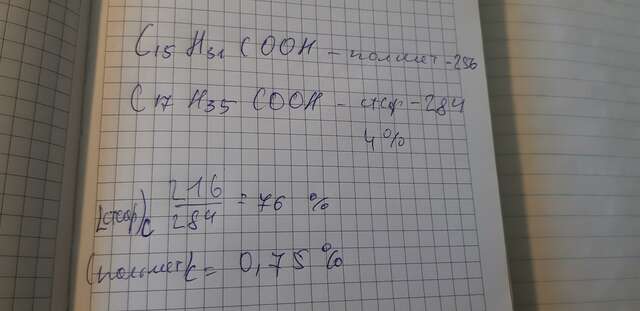 C15 H31 COOH – пальмит – 256
C17 H35 COOH – стеар – 284
4%
(стеар)C 216/284 = 76 %
(пальмит)C = 0,75 %